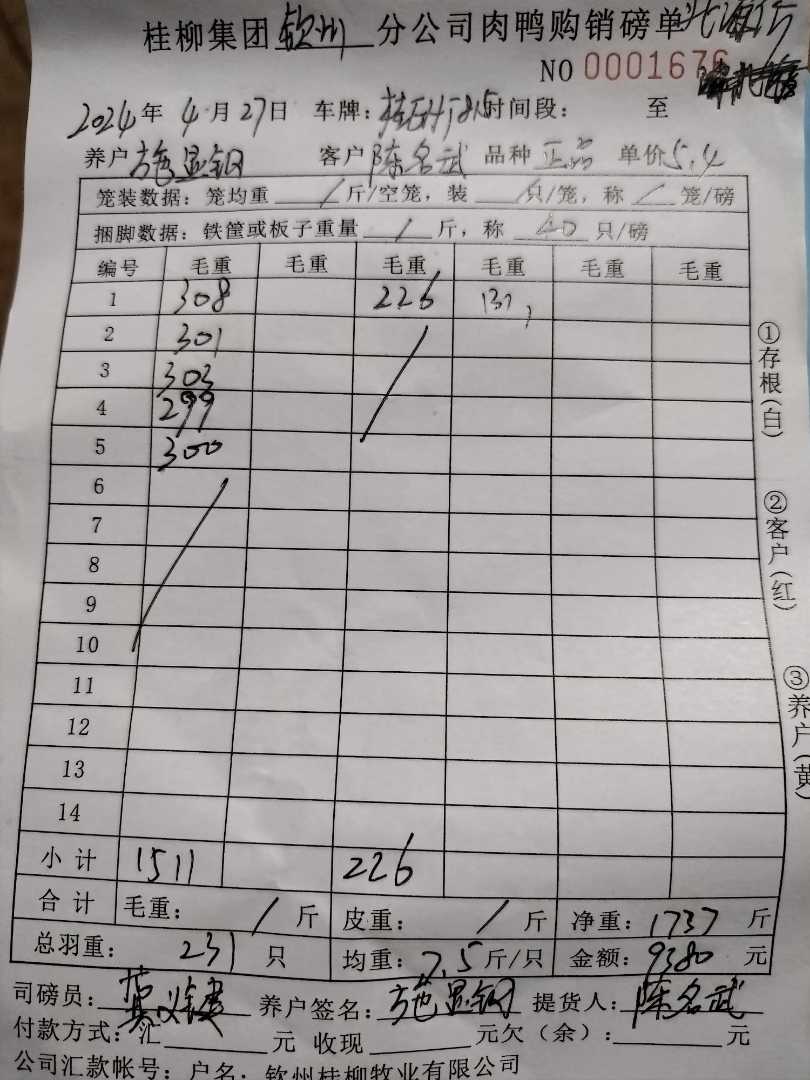 桂柳集团钦州分公司肉鸭购销磅单
NO 0001676
2024年 4月27日 车牌: 时间段: 至
养户施显钢 客户陈名武 品种正品 单价5.4
笼装数据: 笼均重 / 斤/空笼, 装 / 只/笼, 称 / 笼/磅
捆脚数据: 铁筐或板子重量 / 斤, 称 40 只/磅
编号 毛重 毛重 毛重 毛重 毛重 毛重
1 308 226 131,
2 301
3 303
4 299
5 300
6
7
8
9
10
11
12
13
14
小计 1511 226
合计 毛重: / 斤 皮重: / 斤 净重: 1737 斤
总羽重: 231 只 均重: 7.5斤/只 金额: 9380 元
司磅员: 养户签名: 施显钢 提货人: 陈名武
付款方式: 汇 元 收现 元欠(余): 元
公司汇款帐号: 户名: 钦州桂柳牧业有限公司
①存根(白)
②客户(红)
③养户(黄)